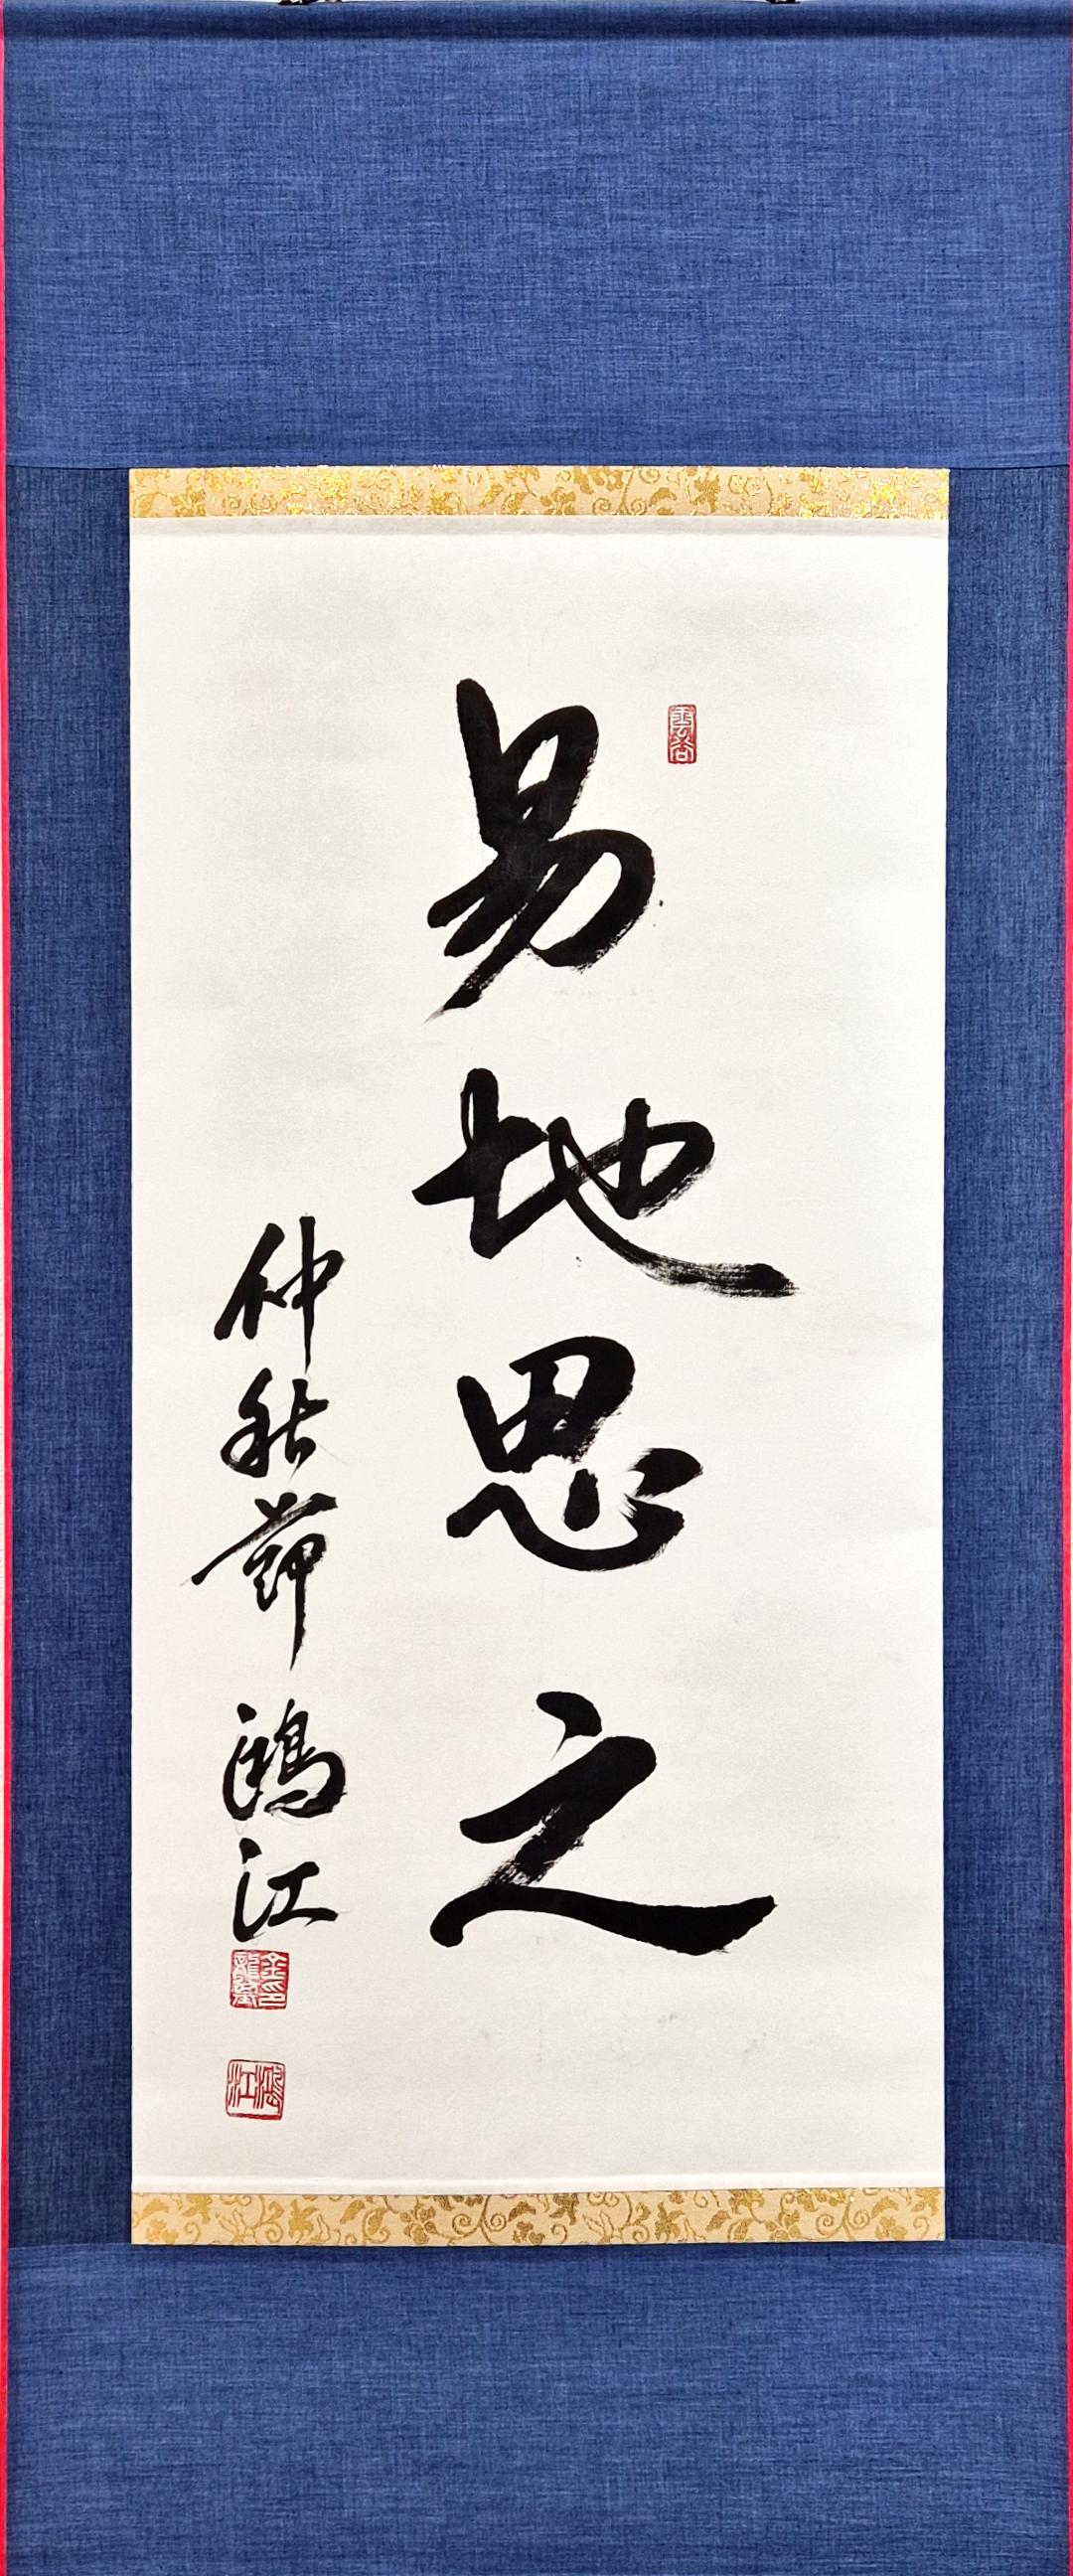 易地思之
仲秋節 鴻江